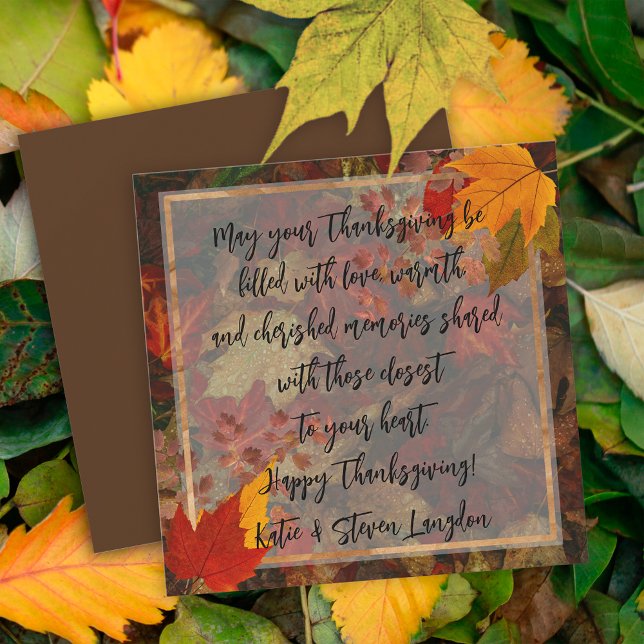 May your Thanksgiving be
filled with love, warmth,
and cherished memories shared
with those closest
to your heart.
Happy Thanksgiving!
Katie & Steven Langdon